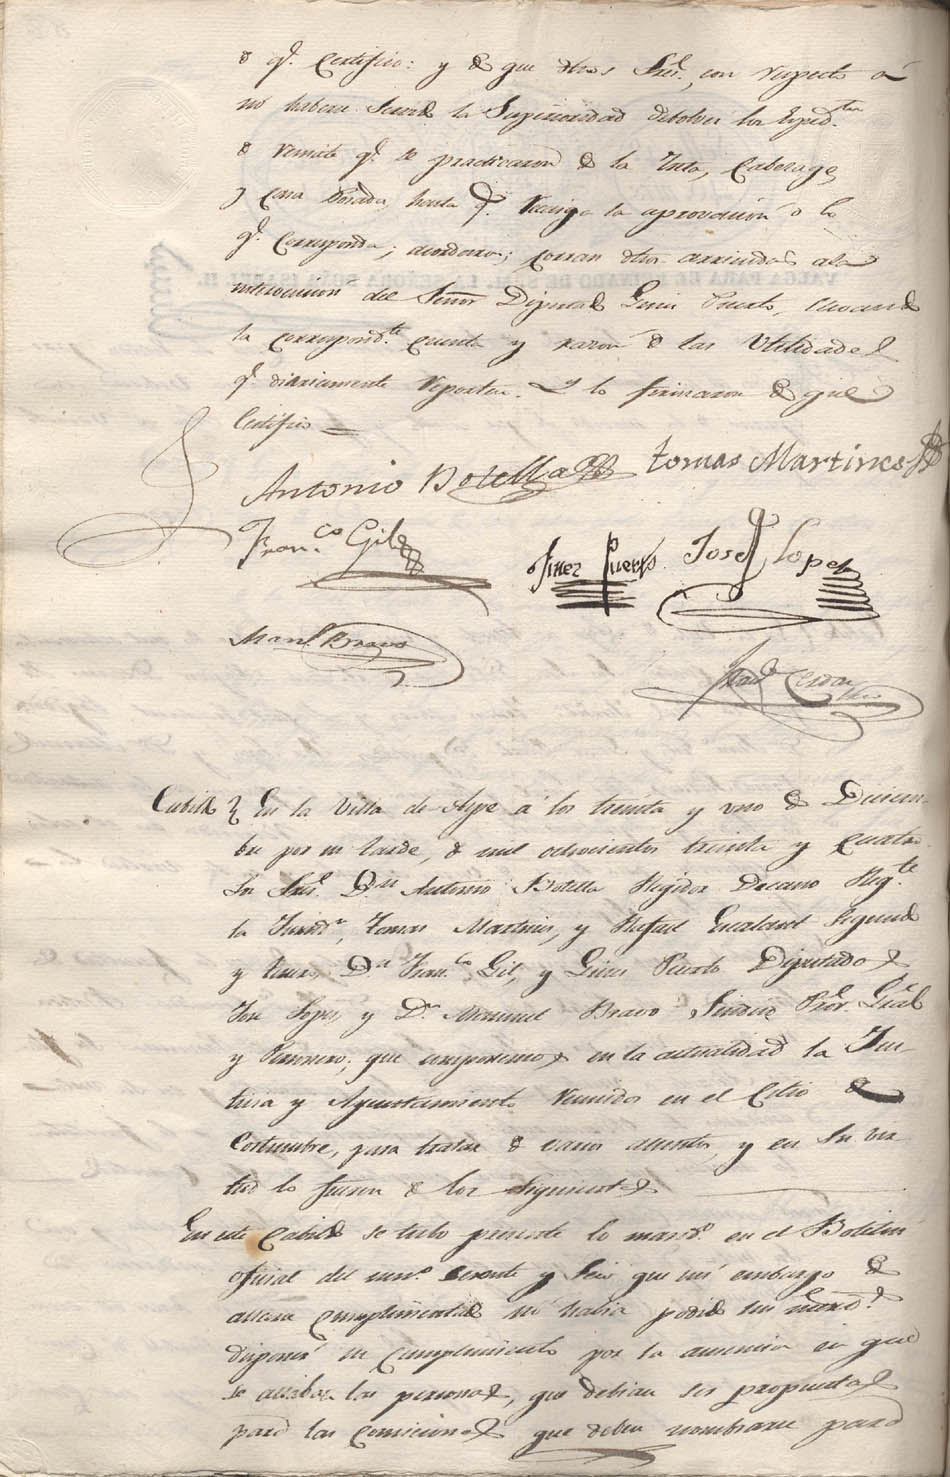 d q.e Certifico: y de que dhos Sres. con respecto a
no haberse Servido la Superioridad debolver los Exped.tes
d remate q.e se practicaron de la Tinta, Cabezage,
y Casa Posada, hasta q.e recaiga la aprovación o lo
q.e corresponda; acordaron; corran dhos arriendos a la
intervencion del Señor Diputado Gines Puerto, llevando
la correspond.te cuenta y razon d las Utilidades
q.e diariamente reporten. Y lo firmaron de que
Certifico =
Antonio Botella Tomas Martines
Fran.co Gil Jinez Puerto Josef Lopez
Man.l Bravo
Cabildo En la Villa de Aspe á los treinta y uno de Diciem-
bre por la tarde, d mil ochocientos treinta y cuatro
Los Sres. D.n Antonio Botella Regidor Decano Reg.te
la Jurisd.n, Tomas Martines, y Rafael segundo
y tercero, D.n Fran.co Gil, y Gines Puerto Diputados
Jose Lopez, y D.n Manuel Bravo Sindico Pror. Gral
y Personero; que componemos en la actualidad la Jus-
ticia y Ayuntamiento reunidos en el Citio de
Costumbre, para tratar d varios asuntos, y en su vir-
tud lo fueron d los Siguientes
En este Cabildo se tubo presente lo mand.o en el Boletin
oficial del num.o sesenta y Seis que sin embargo de
cumplimentado no habia podido
disponer su cumplimiento por la ausencia en que
se allaban las personas, que debian ser propuestas
para las Comisiones que deben nombrarse para
VALGA PARA EL REINADO DE S.M. LA SEÑORA DOÑA ISABEL II.